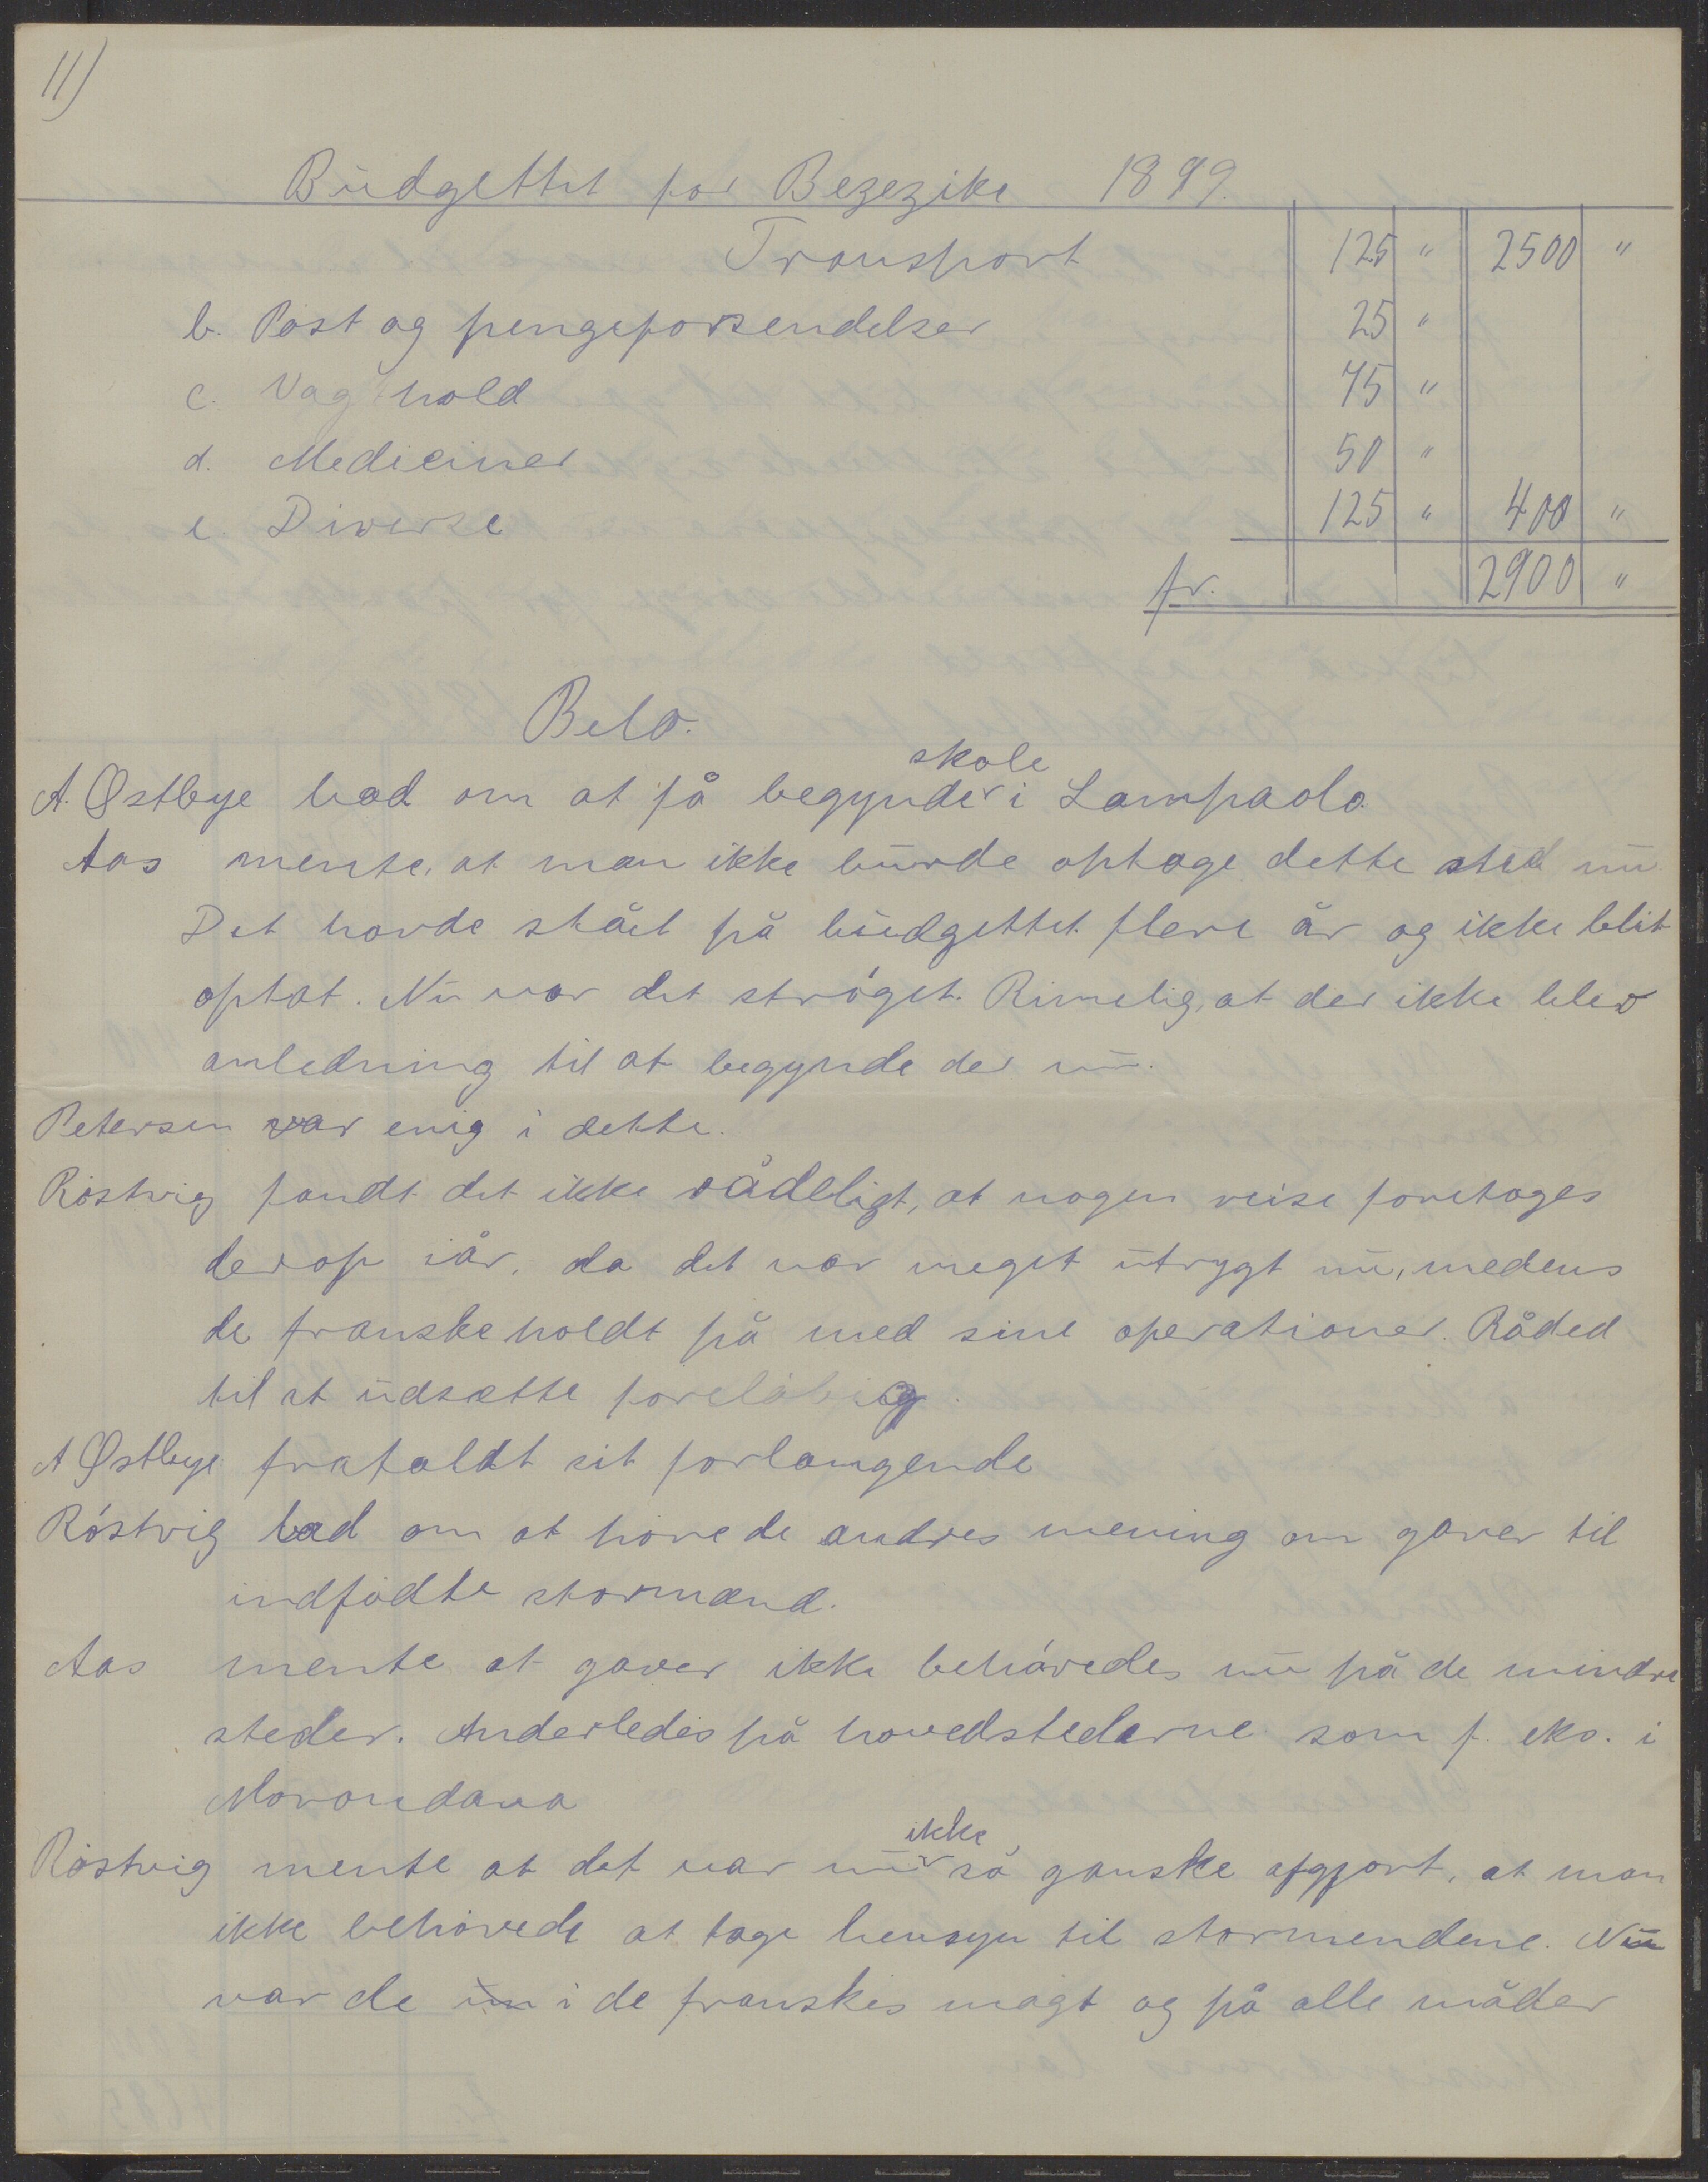 11)
Budgettet for Bezezike 1899.
Transport 125 " 2500 "
b. Post og pengeforsendelser 25 "
c. Vaghold 75 "
d. Mediciner 50 "
e. Diverse 125 " 400 "
fr. 2900 "
Belo.
skole
A. Østbye bad om at få begynde i Lampaolo.
Aas mente, at man ikke burde optage dette sted nu
Det havde stået på budgettet flere år og ikke blit
optat. Nu var det strøget. Rimelig, at der ikke blev
anledning til at begynde der nu.
Petersen var enig i dette.
Røstvig fandt det ikke rådeligt, at nogen reise foretoges
derop iår, da det var meget utrygt nu, medens
de franske holdt på med sine operationer. Råded
til at udsætte foreløbig.
A Østbye frafaldt sit forlangende
Røstvig bad om at høre de andres mening om gaver til
indfødte stormænd.
Aas mente at gaver ikke behøvedes nu på de mindre
steder. Anderledes på hovedstederne som f. eks. i
Morondava
ikke
Røstvig mente at det var nu så ganske afgjort, at man
ikke behøvede at tage hensyn til stormendene. Nu
var de i de franskes magt og på alle måder